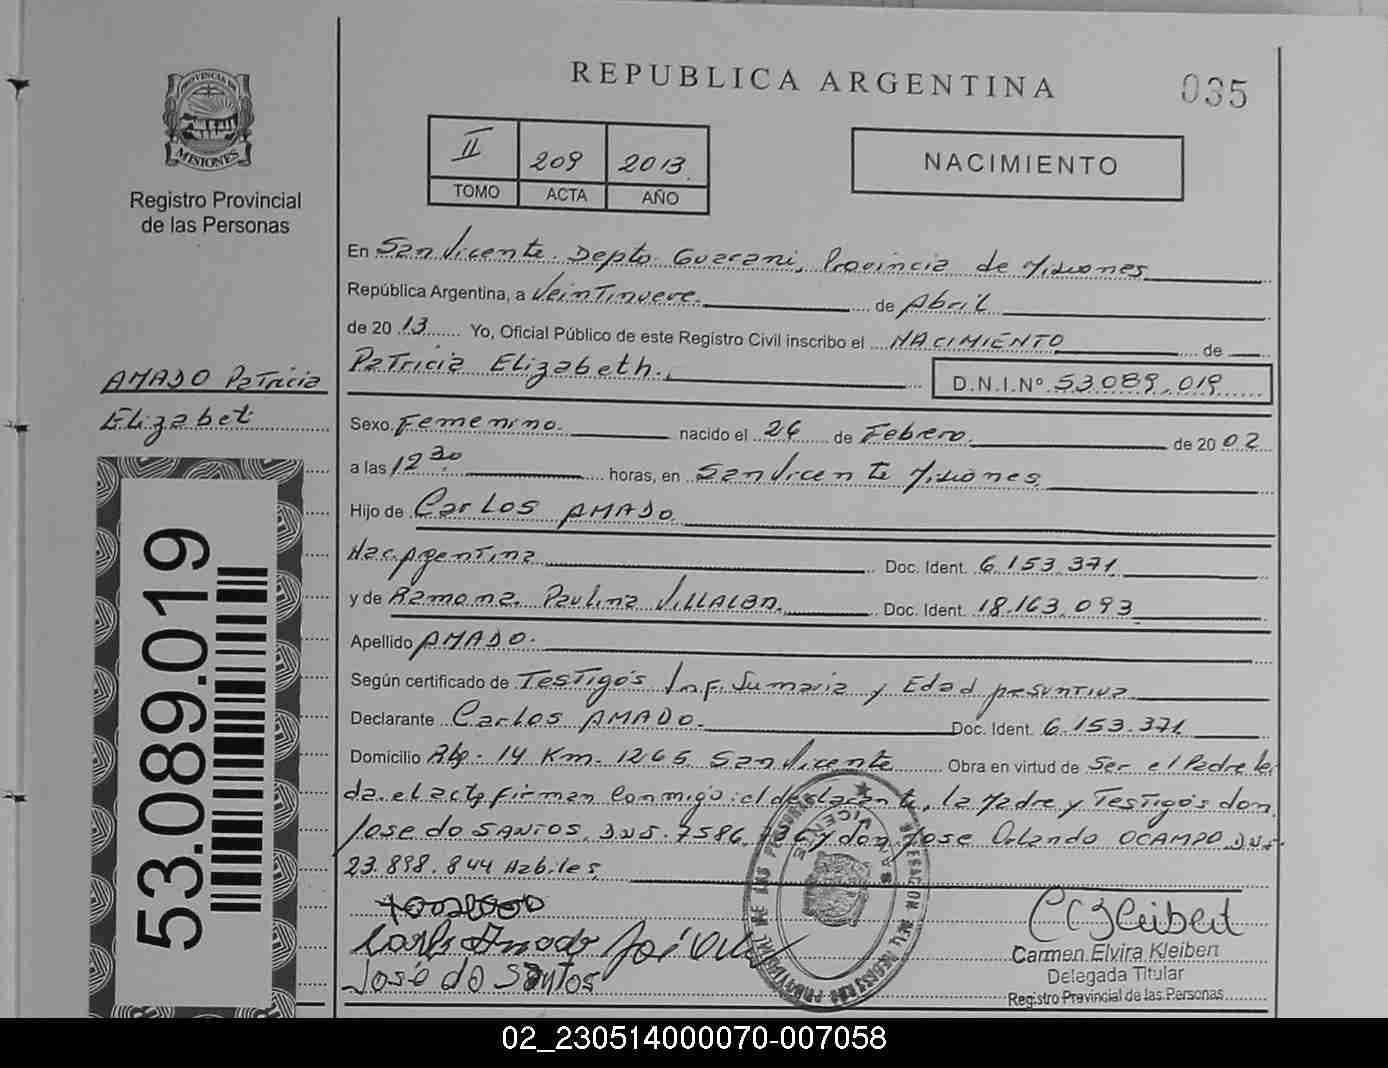 REPUBLICA ARGENTINA
035
PROVINCIA DE
MISIONES
Registro Provincial
de las Personas
II 209 2013
TOMO ACTA AÑO
NACIMIENTO
En San Vicente. Depto. Guarani, Provincia de Misiones
República Argentina, a Veintinueve. de Abril
de 20 13 Yo, Oficial Público de este Registro Civil inscribo el NACIMIENTO de
Patricia Elizabeth. D.N.I.Nº 53.089.019
AMADO Patricia
Elizabet
Sexo Femenino. nacido el 26 de Febrero. de 20 02
a las 12 30 horas, en San Vicente Misiones
Hijo de Carlos AMADO
Nac. Argentina Doc. Ident. 6.153.371
y de Ramona Paulina VILLALBA Doc. Ident. 18.163.093
Apellido AMADO.
Según certificado de Testigos Inf. Sumaria y Edad presuntiva
Declarante Carlos AMADO. Doc. Ident. 6.153.371
Domicilio Rta. 14 Km. 1265 San Vicente Obra en virtud de Ser el Padre le
da. el acta firman conmigo: el declarante, la Madre y Testigos don
Jose do SANTOS, D.N.I. 7586. y don Jose Orlando OCAMPO D.N.I.
23.898.844 Habiles
Carlos Amado
José do Santos
CEKleibert
Carmen Elvira Kleibert
Delegada Titular
Registro Provincial de las Personas
53.089.019
02_230514000070-007058